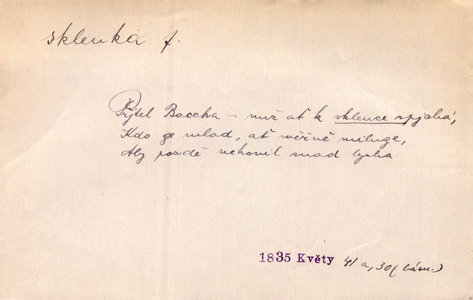 sklenka f.
Přjtel Baccha – nuž ať k sklence spjchá,
Kdo ge mlad, ať wěrně miluge,
Aby pozdě nehonil snad lycha
1835 Květy 41 a, 30 (báseň)